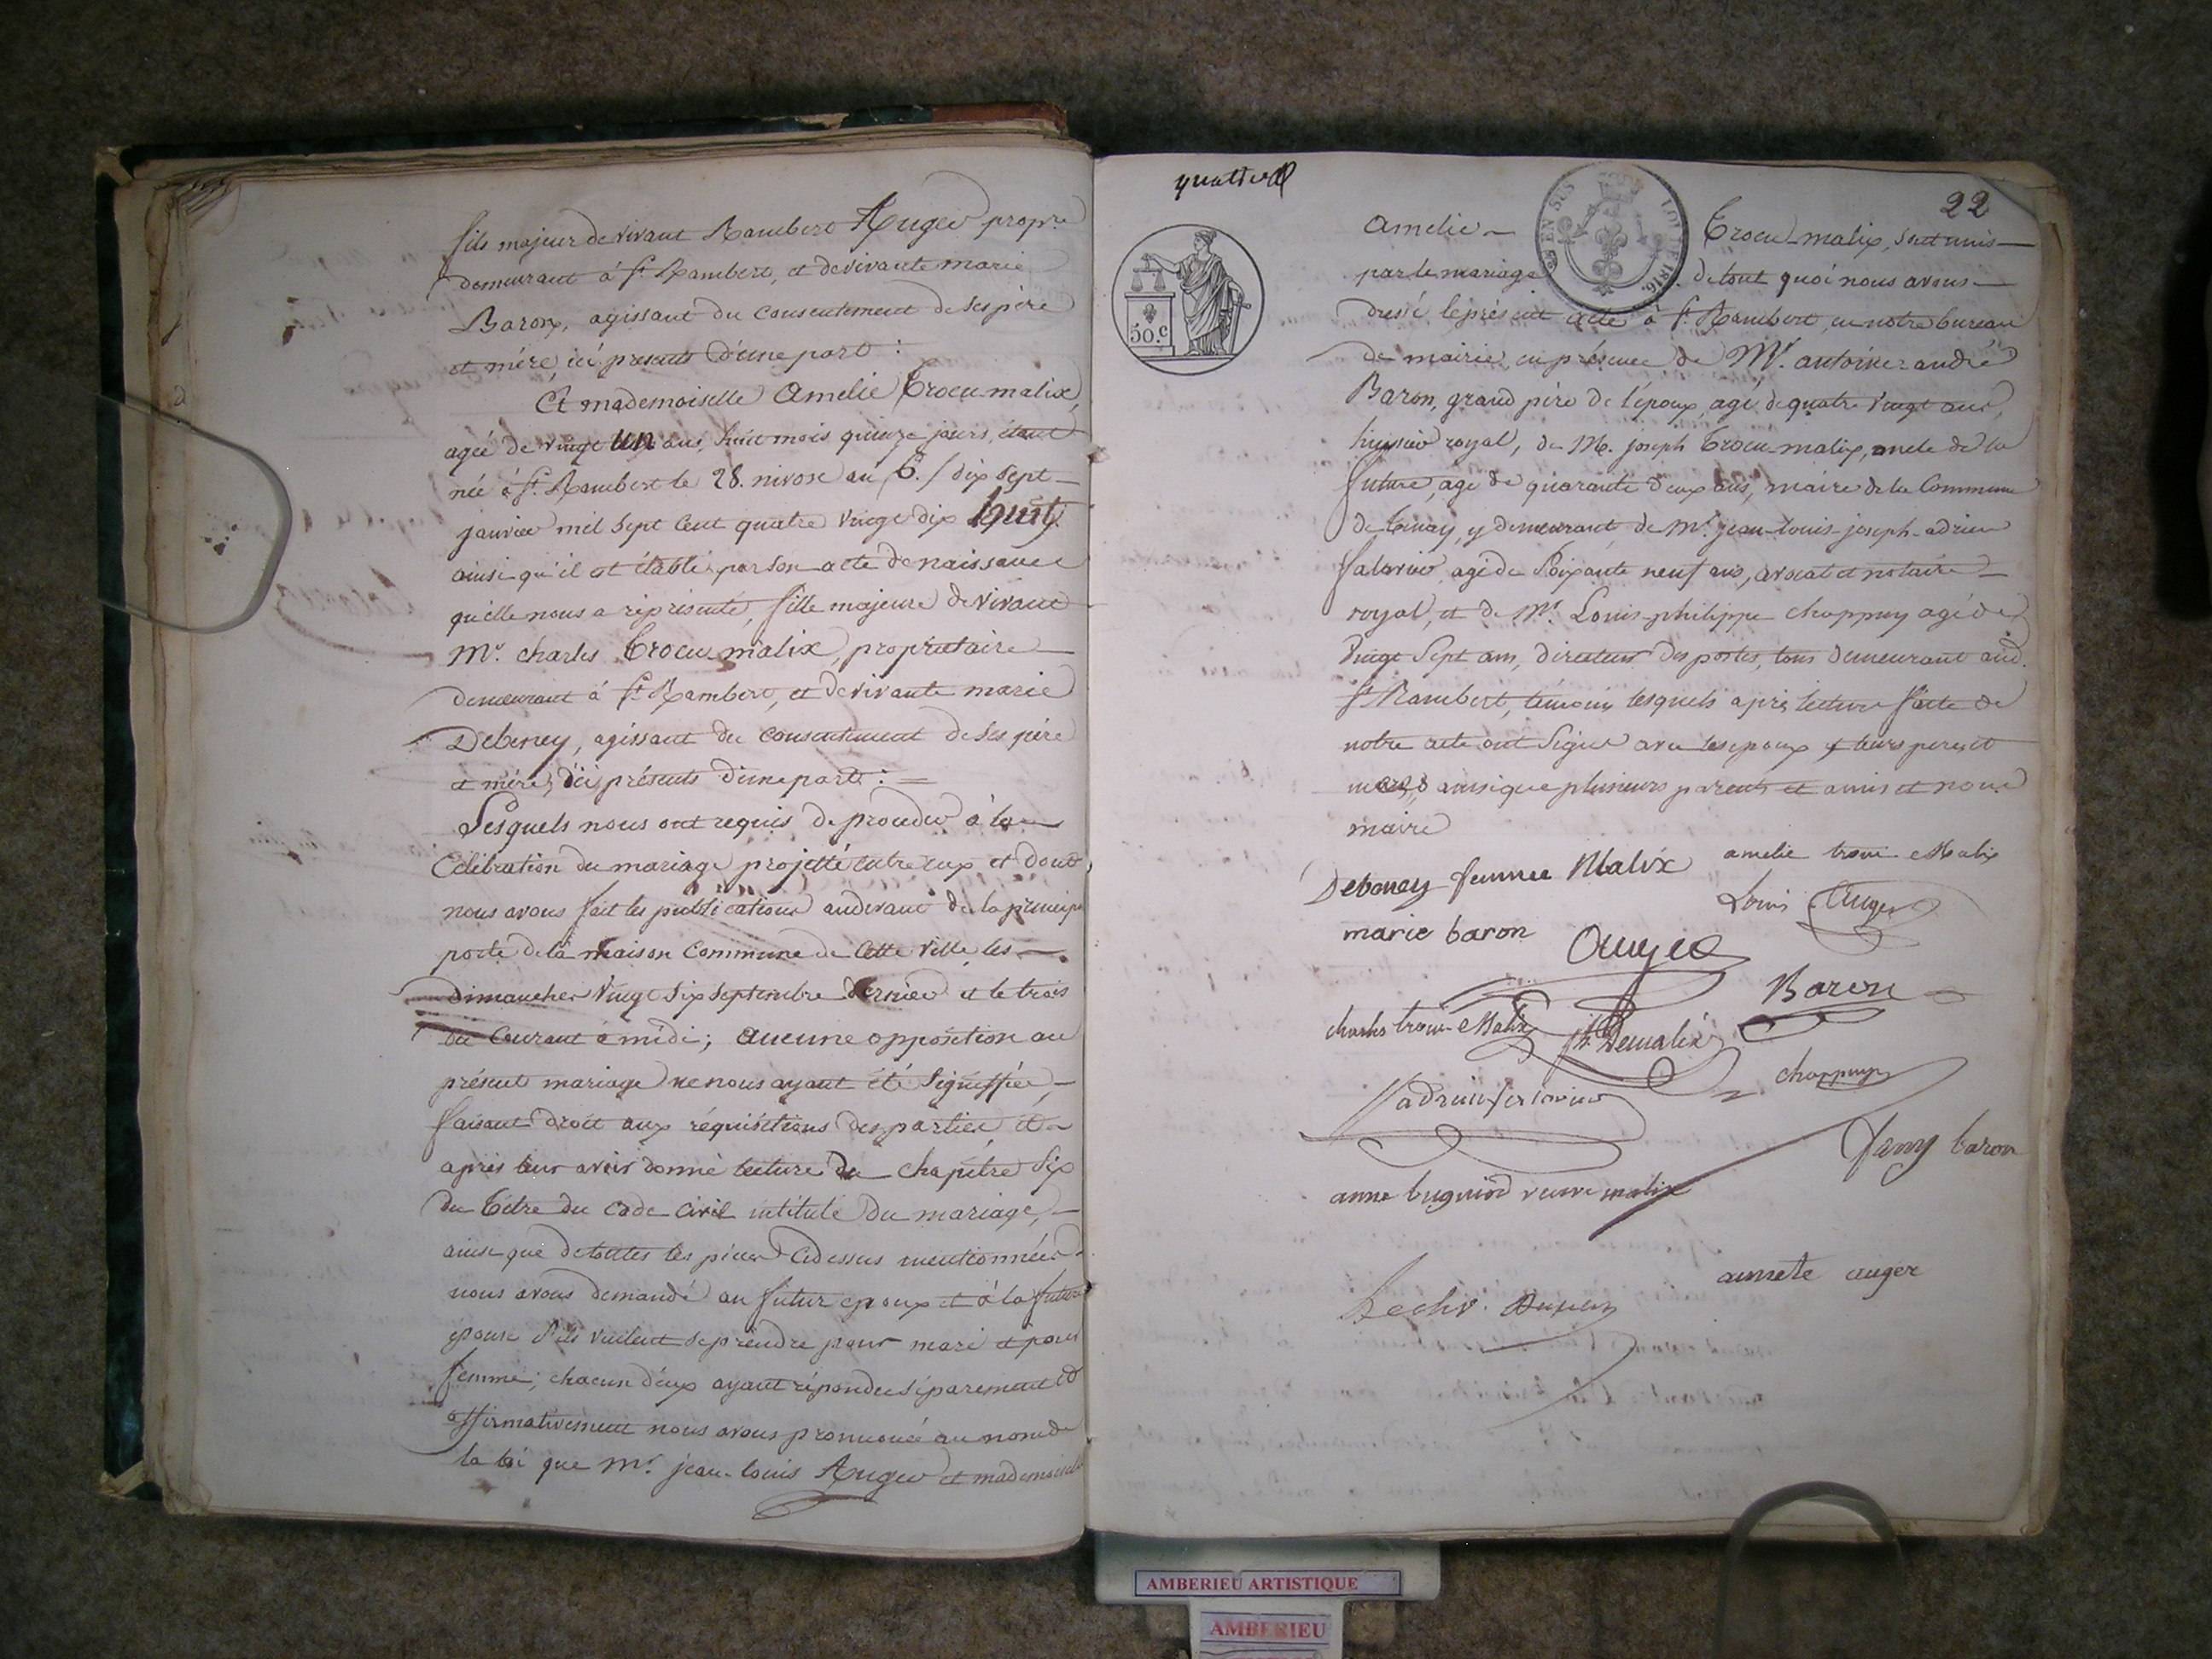 fils majeur de vivant Rambert Auger propre
demeurant à St. Rambert, et de vivante marie
Baron, agissant du consentement de ses père
et mère, ici présents d'une part :
Et mademoiselle Amelie Trocu-malix,
agée de vingt un ans, huit mois quinze jours, étant
née à St. Rambert le 28. nivose an 6. / dix sept
janvier mil sept cent quatre vingt dix huit/.
ainsi qu'il est établi par son acte de naissance
qu'elle nous a réprésenté, fille majeure de vivant
Mr. charles Trocu-malix, propriétaire
demeurant à St. Rambert, et de vivante marie
Debeney, agissant du consentement de ses père
et mère, ici présents d'une part : =
Lesquels nous ont requis de procéder à la
Célébration du mariage projetté entre eux et dont
nous avons fait les publications audevant de la princip
porte de la maison Commune de Cette Ville, les
dimanches vingt six septembre dernier et le trois
du Courant à midi ; aucune opposition au
présent mariage ne nous ayant été signiffiée,
faisant droit aux réquisitions des parties, et
après leur avoir donné lecture du chapitre six
du titre du code civil intitulé du mariage,
ainsi que de toutes les pièces Cidessus mentionnées
nous avons demandé au futur epoux et à la future
épouse s'ils veulent se prendre pour mari et pour
femme ; chacun d'eux ayant répondu séparement et
affirmativement nous avons prononcé au nom de
la loi que Mr. jean-louis Auger et mademoiselle
22
Amelie Trocu-malix, sont unis
par le mariage de tout quoi nous avons
dressé le présent acte à St. Rambert, en notre bureau
de mairie, en présence de Mr. antoine andré
Baron, grand père de l'époux, agé de quatre vingt ans,
huissier royal, de M. joseph Trocu-malix, oncle de la
future, agé de quarante deux ans, maire de la Commune
de tenay, y demeurant, de Mr. jean-louis-joseph-adrien
agé de soixante neuf ans, avocat et notaire
royal, et de Mr. Louis-philippe chappuy agé de
vingt sept ans, directeur des postes, tous demeurant aud.
St Rambert, témoins lesquels après lecture faite de
notre acte ont signé avec les epoux et leurs peres et
meres, ainsi que plusieurs parents et amis et nous
maire
Debeney femme Malix amelie trocu Malix
Louis Auger
marie baron Auger
Baron
charles trocu Malix
chappuy
fany baron
anne bugniod veuve malix
annete auger
50.c
EN SUS
AMBERIEU ARTISTIQUE
AMBERIEU